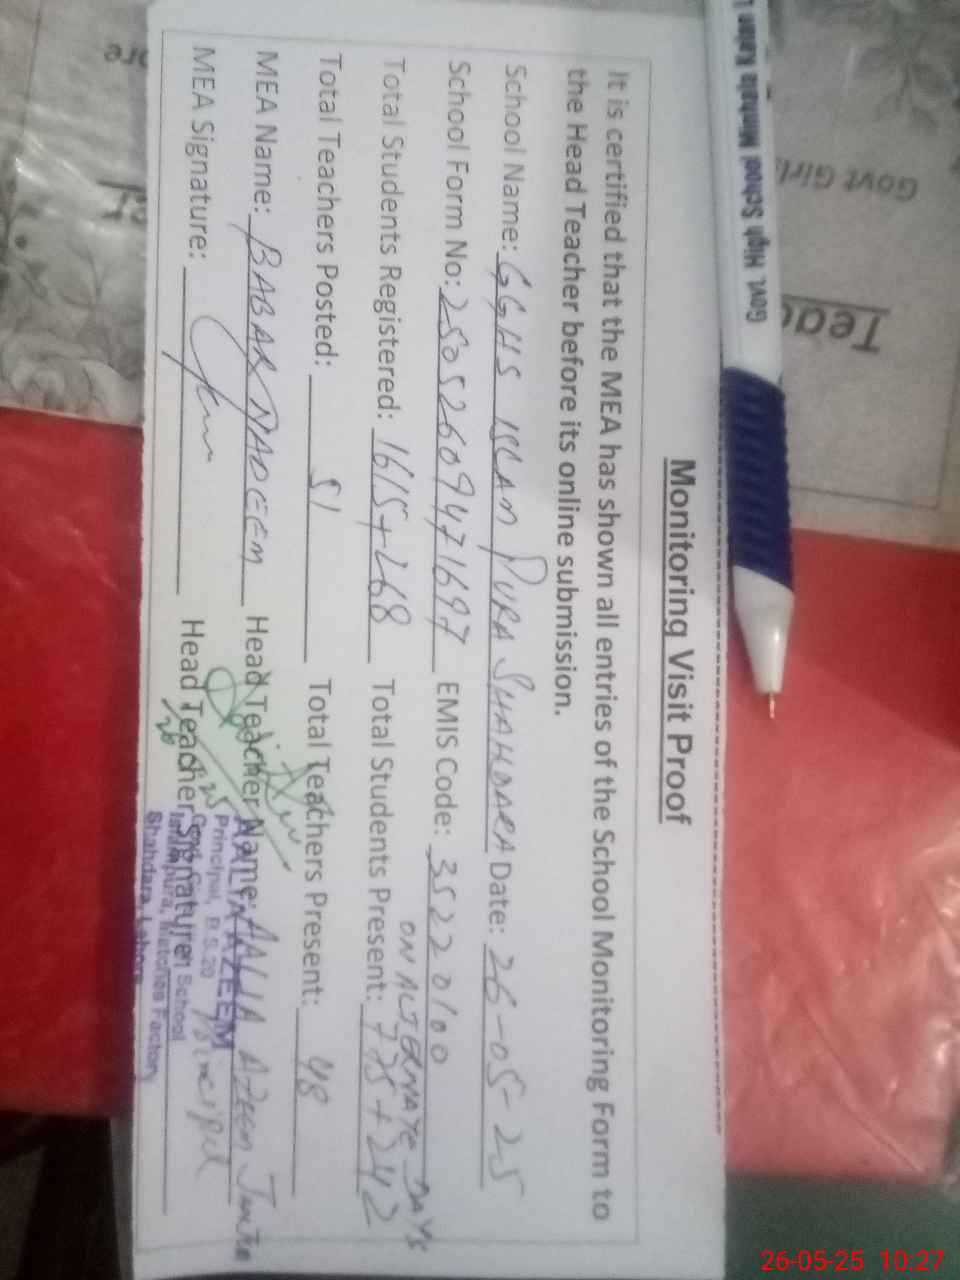 Monitoring Visit Proof
It is certified that the MEA has shown all entries of the School Monitoring Form to
the Head Teacher before its online submission.
School Name: GGHS ISLAM PURA SHAHDARA Date: 26-05-25
School Form No: 25052609471697 EMIS Code: 35220100
ON ALTERNATE DAYS
Total Students Registered: 1615+268 Total Students Present: 775+242
Total Teachers Posted: 51 Total Teachers Present: 48
MEA Name: BABAR NADEEM Head Teacher Name: AALIA AZEEM
MEA Signature: Head Teacher Signature:
AALIA AZEEM
Principal, B.S.20 Principal
Govt. Girls High School
Islampura, Matches Factory
Shahdara Lahore
Govt. High School
Govt Girl
Teac
26-05-25 10:27